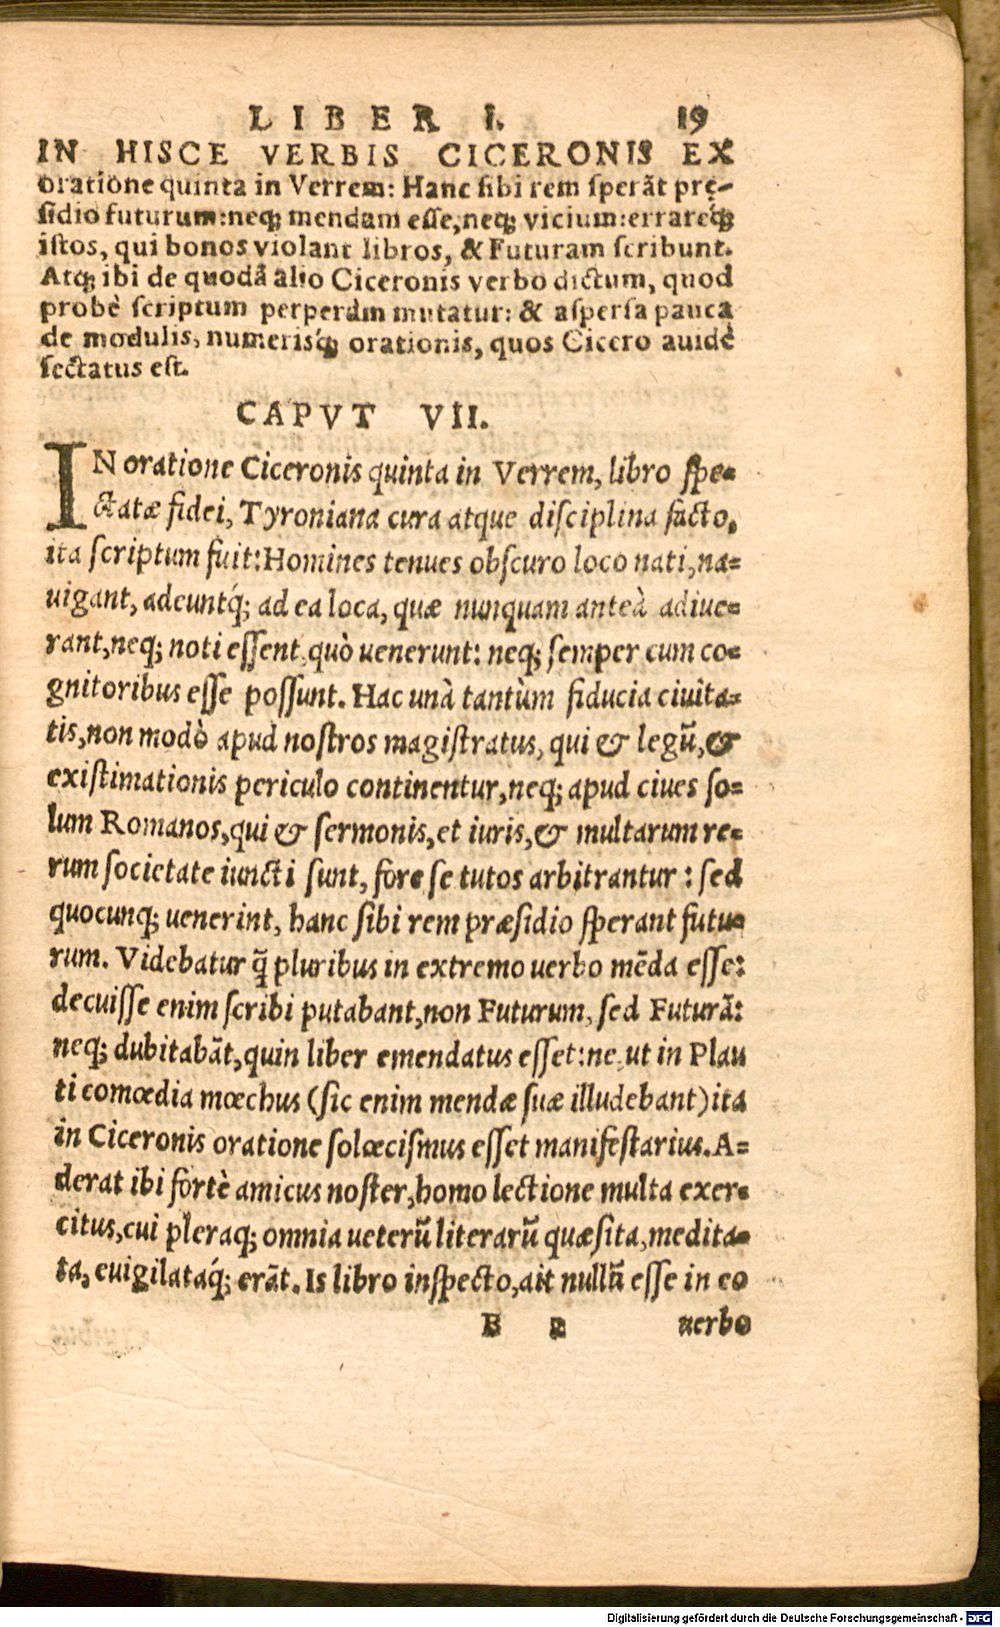 LIBER I. 19
IN HISCE VERBIS CICERONIS EX
oratione quinta in Verrem: Hanc sibi rem sperãt prę-
sidio futurum: neq; mendam esse, neq; vicium: errareq́;
istos, qui bonos violant libros, & Futuram scribunt.
Atq; ibi de quodã alio Ciceronis verbo dictum, quod
probè scriptum perperàm mutatur: & aspersa pauca
de modulis, numerisq́; orationis, quos Cicero auidè
sectatus est.
CAPVT VII.
IN oratione Ciceronis quinta in Verrem, libro spe-
ctatæ fidei, Tyroniana cura atque disciplina facto,
ita scriptum fuit: Homines tenues obscuro loco nati, na-
uigant, adeuntq́; ad ea loca, quæ nunquam anteà adiue-
rant, neq; noti essent quò uenerunt: neq; semper cum co-
gnitoribus esse possunt. Hac unà tantùm fiducia ciuita-
tis, non modò apud nostros magistratus, qui & legũ, &
existimationis periculo continentur, neq; apud ciues so-
lum Romanos, qui & sermonis, et iuris, & multarum re-
rum societate iuncti sunt, fore se tutos arbitrantur: sed
quocunq; uenerint, hanc sibi rem præsidio sperant futu-
rum. Videbatur q̃ pluribus in extremo uerbo mẽda esse:
decuisse enim scribi putabant, non Futurum, sed Futurã:
neq; dubitabãt, quin liber emendatus esset: ne ut in Plau
ti comœdia mœchus (sic enim mendæ suæ illudebant) ita
in Ciceronis oratione solœcismus esset manifestarius. A-
derat ibi fortè amicus noster, homo lectione multa exer-
citus, cui pleraq; omnia ueterũ literarũ quæsita, medita-
ta, euigilataq́; erãt. Is libro inspecto, ait nullũ esse in eo
B 2 uerbo
Digitalisierung gefördert durch die Deutsche Forschungsgemeinschaft - DFG